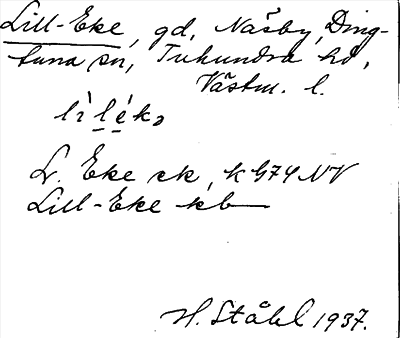 Lill-Eke, gd, Našby, Ding-
tuna sn, Tuhundra hd,
Västm. l.
lìlékə
L. Eke ek, k G74 NV
Lill-Eke kb
H. Ståhl 1937.